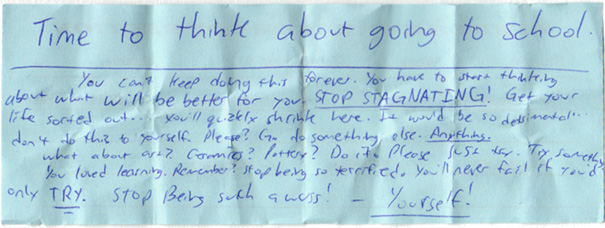 Time to think about going to school.
You can't keep doing this forever. You have to start thinking
about what will be better for you. STOP STAGNATING! Get your
life sorted out... you'll quickly shrink here. It would be so detrimental...
don't do this to yourself. Please? Go do something else. Anything.
What about art? Ceramics? Pottery? Do it. Please just try. Try something
You loved learning. Remember? Stop being so terrified. You'll never fail if you'd
only TRY. STOP Being such a wuss! - Yourself!